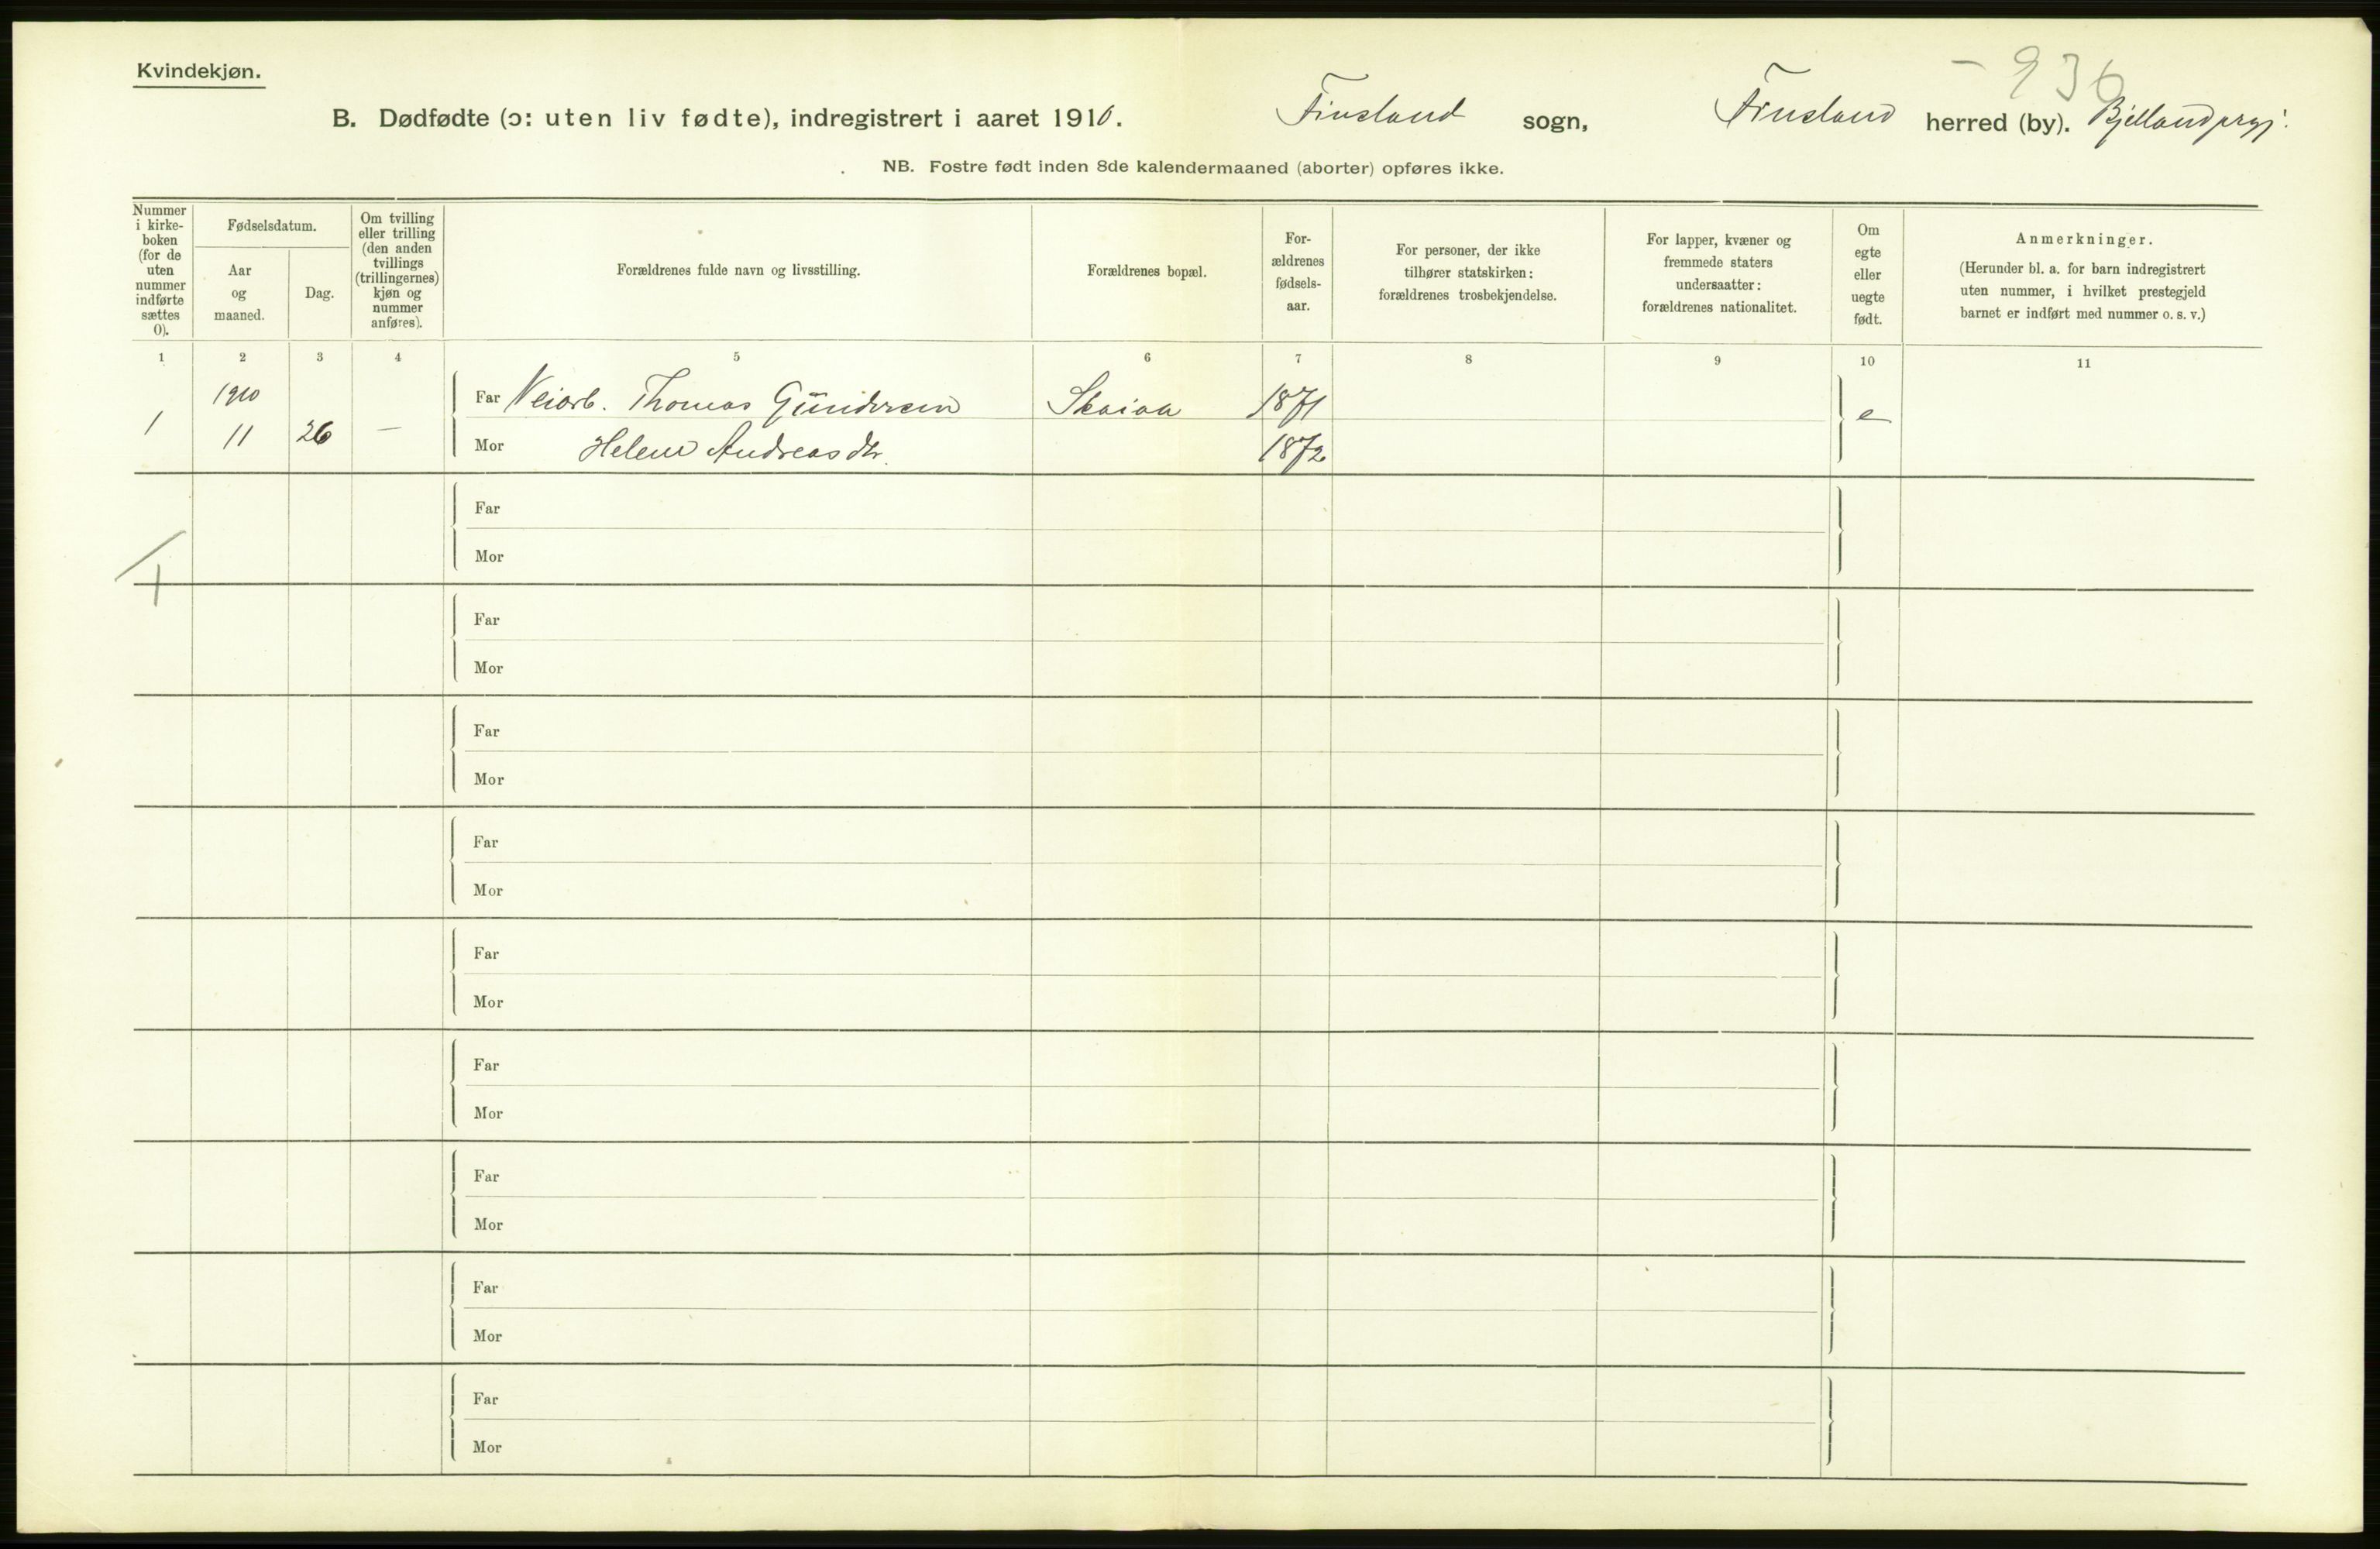 Kvindekjøn.
- 936
B. Dødfødte (ɔ: uten liv fødte), indregistrert i aaret 1910. Finsland sogn, Finsland herred (by). Bjelland prgj.
NB. Fostre født inden 8de kalendermaaned (aborter) opføres ikke.
Nummer
i kirke-
boken
(for de
uten
nummer
indførte
sættes
0).
Fødselsdatum.
Aar
og
maaned.
Dag.
Om tvilling
eller trilling
(den anden
tvillings
(trillingernes)
kjøn og
nummer
anføres).
Forældrenes fulde navn og livsstilling.
Forældrenes bopæl.
For-
ældrenes
fødsels-
aar.
For personer, der ikke
tilhører statskirken:
forældrenes trosbekjendelse.
For lapper, kvæner og
fremmede staters
undersaatter:
forældrenes nationalitet.
Om
egte
eller
uegte
født.
Anmerkninger.
(Herunder bl. a. for barn indregistrert
uten nummer, i hvilket prestegjeld
barnet er indført med nummer o. s. v.)
1 2 3 4 5 6 7 8 9 10 11
1910
Far Veiarb. Thomas Gundersen Skaiaa 1871
1 11 26 — e
Mor Helene Andreasdtr. 1872
Far
Mor
1
Far
Mor
Far
Mor
Far
Mor
Far
Mor
Far
Mor
Far
Mor
Far
Mor
Far
Mor